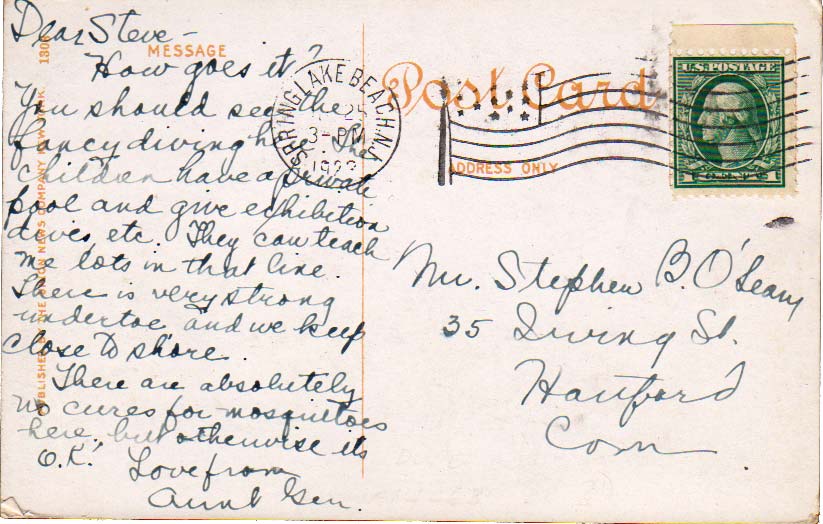 Dear Steve -
MESSAGE
How goes it?
You should see the
fancy diving here. The
children have a private
pool and give exhibition
dives, etc. They can teach
me lots in that line.
There is very strong
undertoe and we keep
close to shore.
There are absolutely
no cures for mosquitoes
here, but otherwise its
O.K. Love from
Aunt Gen.
1306
PUBLISHED BY THE UNION NEWS COMPANY NEW YORK.
Post Card
ADDRESS ONLY
SPRING LAKE BEACH N.J.
25
3-PM
U.S. POSTAGE
1 CENT
Mr. Stephen B. O'Leary
35 Irving St.
Hartford
Conn